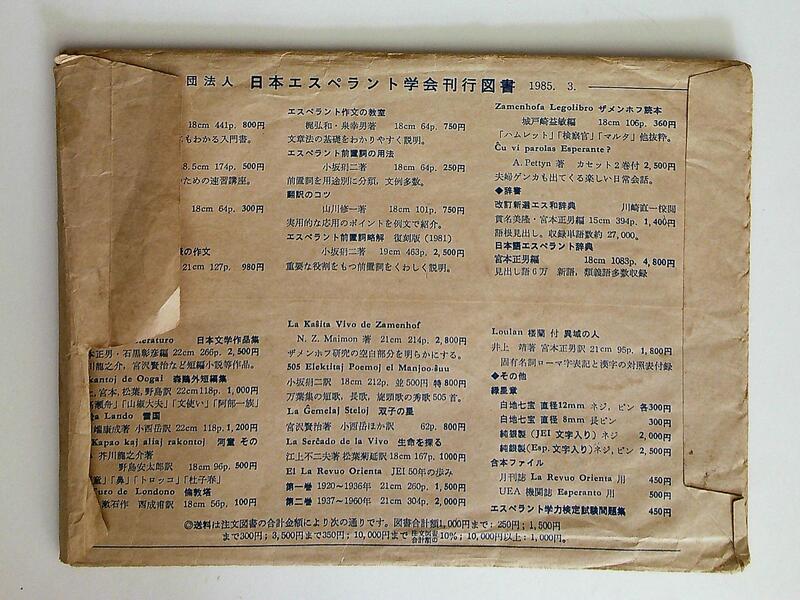 団法人 日本エスペラント学会刊行図書 1985. 3.
18cm 441p. 800円
もわかる入門書。
8.5cm 174p. 500円
ための速習講座。
18cm 64p. 300円
の作文
21cm 127p. 980円
エスペラント作文の教室
梶弘和・泉幸男著 18cm 64p. 750円
文章法の基礎をわかりやすく説明。
エスペラント前置詞の用法
小坂狷二著 18cm 64p. 250円
前置詞を用途別に分類，文例多数。
翻訳のコツ
山川修一著 18cm 101p. 750円
実用的な応用のポイントを例文で紹介。
エスペラント前置詞略解 復刻版（1981）
小坂狷二著 19cm 463p. 2,500円
重要な役割をもつ前置詞をくわしく説明。
Zamenhofa Legolibro ザメンホフ読本
城戸崎益敏編 18cm 106p. 360円
「ハムレット」「検察官」「マルタ」他抜粋。
Ĉu vi parolas Esperante?
A. Pettyn 著 カセット2巻付 2,500円
夫婦ゲンカも出てくる楽しい日常会話。
◆辞書
改訂新選エス和辞典 川崎直一校閲
貫名美隆・宮本正男編 15cm 394p. 1,400円
語根見出し。収録単語数約 27,000。
日本語エスペラント辞典
宮本正男編 18cm 1083p. 4,800円
見出し語6万 新語，類義語多数収録
literaturo 日本文学作品集
本正男・石黒彰彦編 22cm 266p. 2,500円
川龍之介，宮沢賢治など短編小説等作品。
kantoj de Oogai 森鷗外短編集
上，宮本，松葉，野島訳 22cm 118p. 1,000円
高瀬舟」「山椒大夫」「文使い」「阿部一族」
a Lando 雪国
端康成著 小西岳訳 22cm 118p. 1,200円
Kapao kaj aliaj rakontoj 河童 その
芥川龍之介著
野島安太郎訳 18cm 96p. 500円
童」「鼻」「トロッコ」「杜子春」
Turo de Londono 倫敦塔
漱石作 西成甫訳 18cm 56p. 100円
La Kaŝita Vivo de Zamenhof
N. Z. Maimon 著 21cm 214p. 2,800円
ザメンホフ研究の空白部分を明らかにする。
505 Elektitaj Poemoj el Manjoo-ŝuu
小坂狷二訳 18cm 212p. 並500円 特800円
万葉集の短歌，長歌，旋頭歌の秀歌 505 首。
La Ĝemelaj Steloj 双子の星
宮沢賢治著 小西岳ほか訳 62p. 800円
La Serĉado de la Vivo 生命を探る
江上不二夫著 松葉菊延訳 18cm 167p. 1000円
El La Revuo Orienta JEI 50年の歩み
第一巻 1920〜1936年 21cm 260p. 1,500円
第二巻 1937〜1960年 21cm 304p. 2,000円
Loulan 楼蘭 付 異域の人
井上 靖著 宮本正男訳 21cm 95p. 1,800円
固有名詞ローマ字表記と漢字の対照表付録
◆その他
緑星章
白地七宝 直径12mm ネジ，ピン 各300円
白地七宝 直径 8mm 長ピン 300円
純銀製（JEI 文字入り）ネジ 2,000円
純銀製（Esp. 文字入り）ネジ，ピン 2,500円
合本ファイル
月刊誌 La Revuo Orienta 用 450円
UEA 機関誌 Esperanto 用 500円
エスペラント学力検定試験問題集 450円
◎送料は注文図書の合計金額により次の通りです。図書合計額1,000円まで：250円；1,500円
まで300円；3,500円まで350円；10,000円まで注文図書合計額の10%；10,000円以上：1,000円。